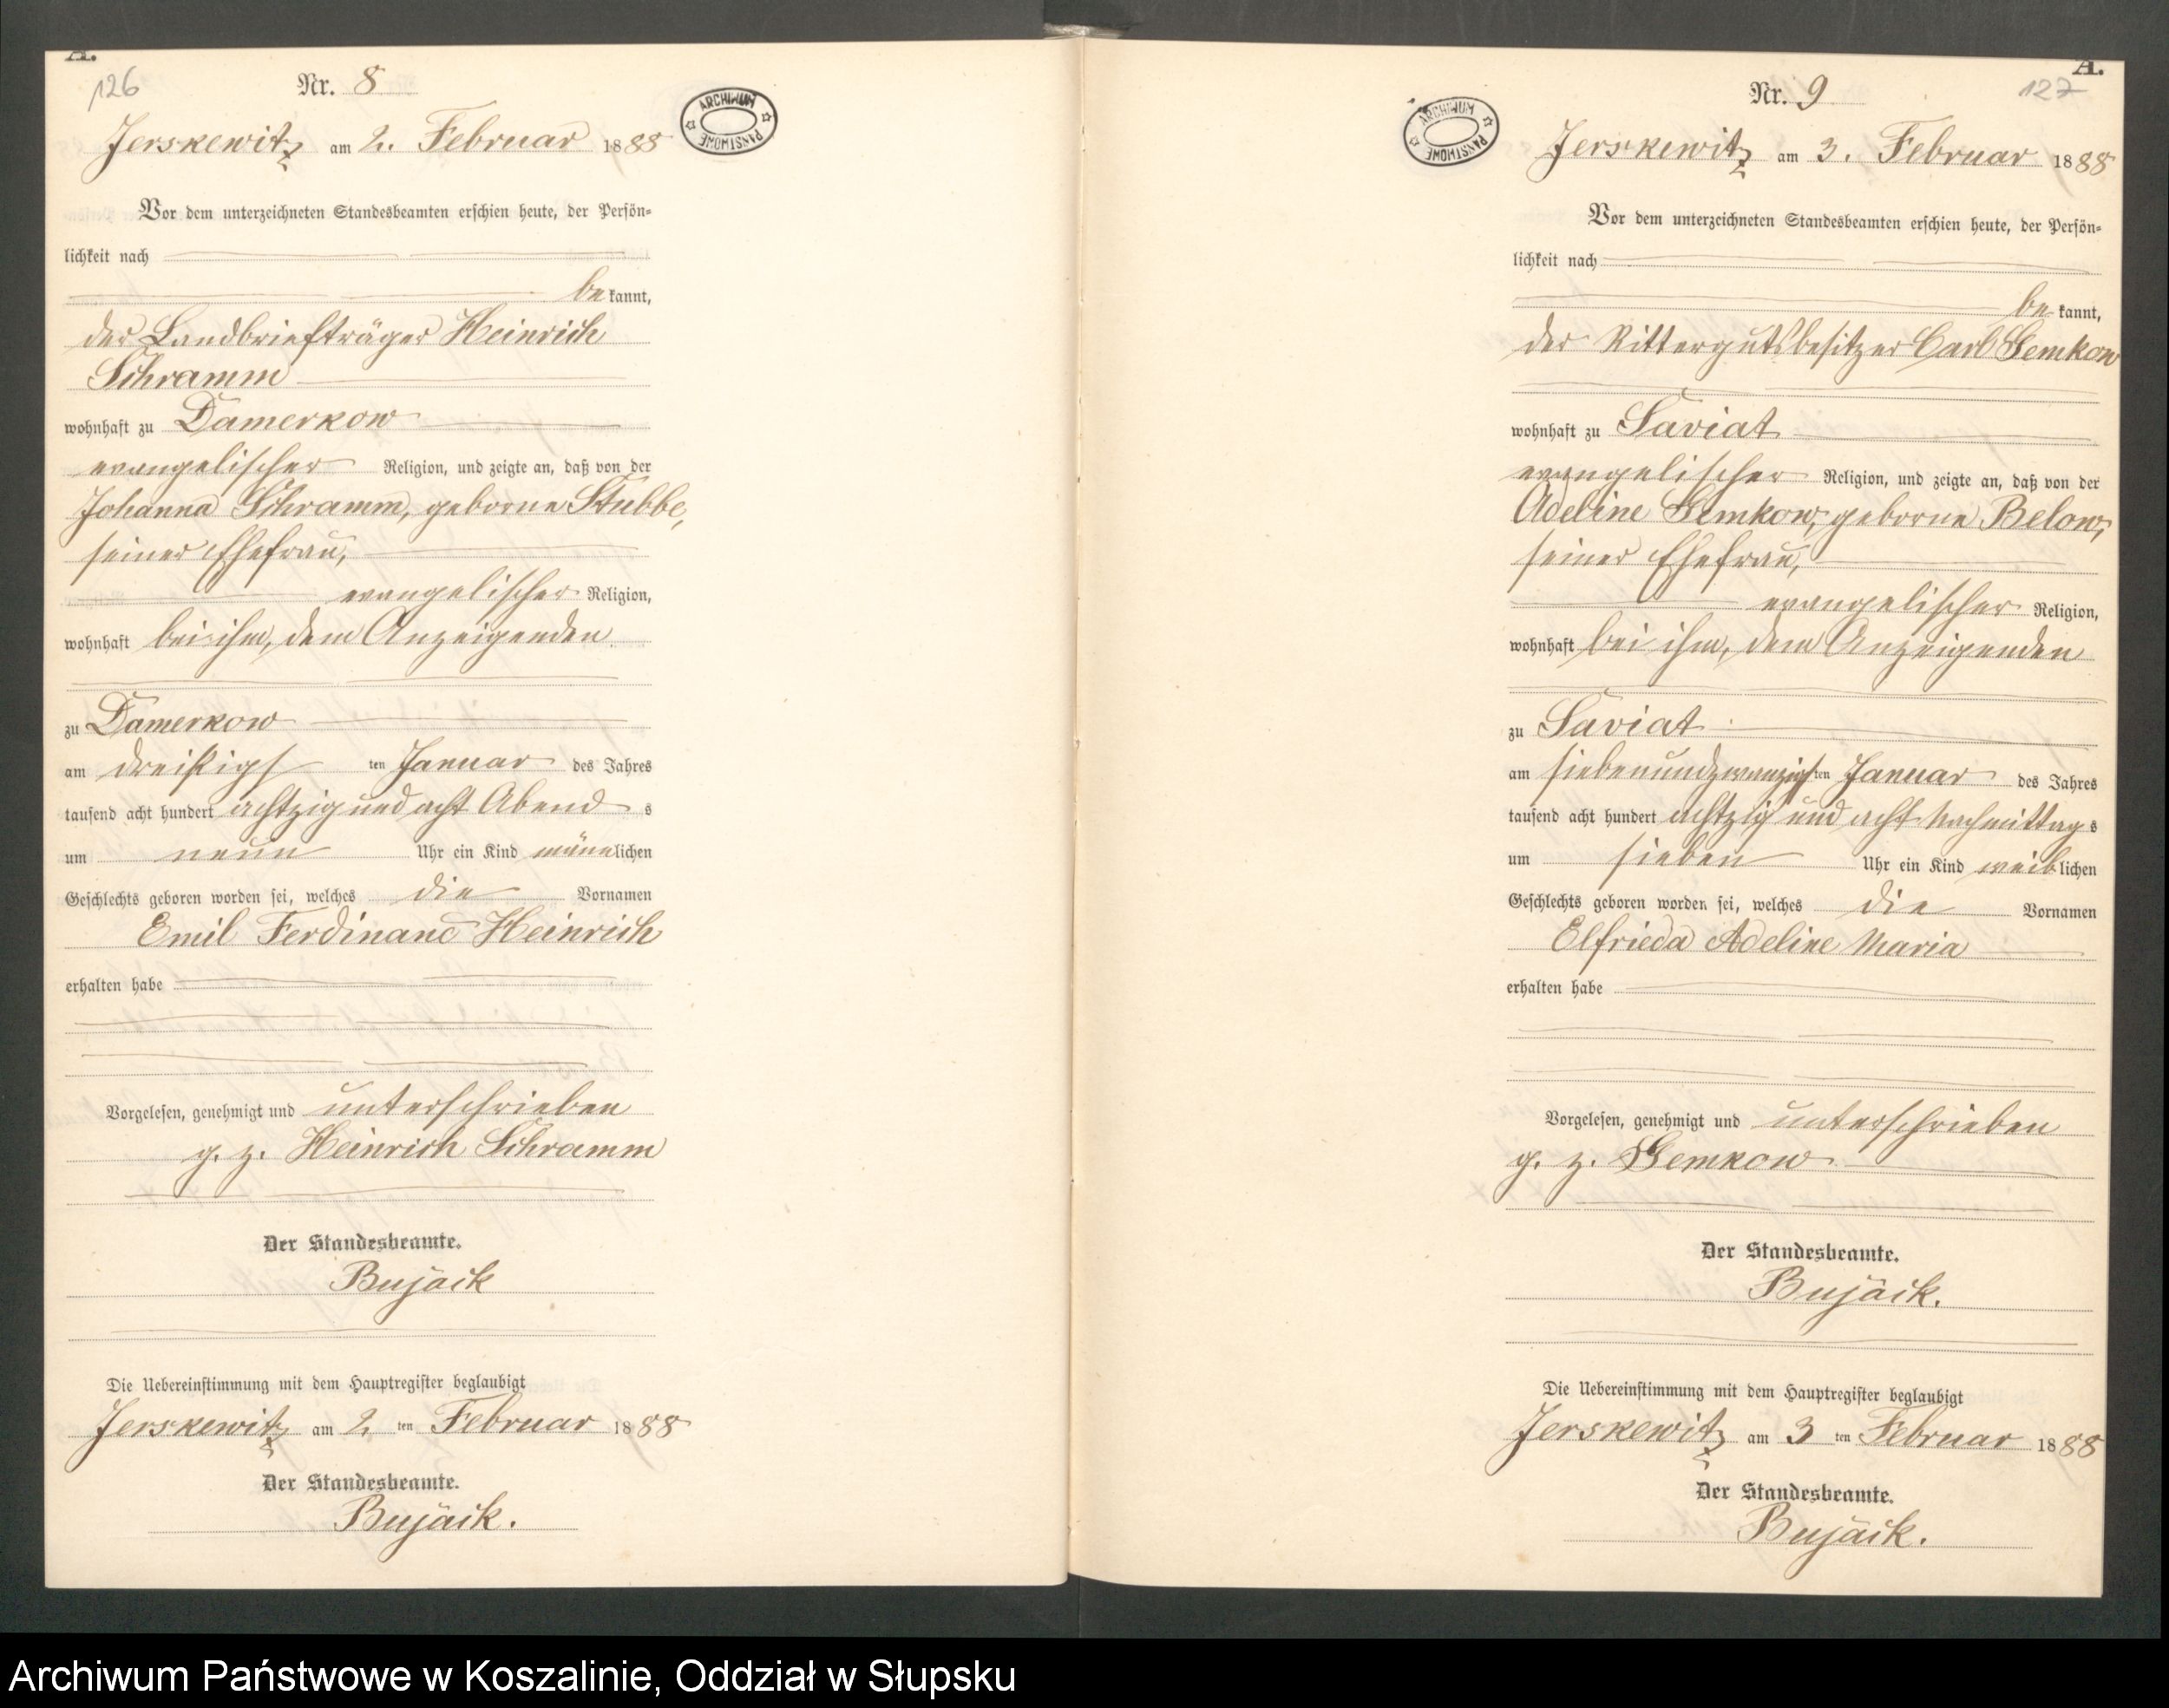 A.
126
Nr. 8
ARCHIWUM PAŃSTWOWE
Jerskewitz am 2. Februar 1888
Vor dem unterzeichneten Standesbeamten erschien heute, der Persön=
lichkeit nach
be kannt,
der Landbriefträger Heinrich
Schramm
wohnhaft zu Damerkow
evangelischer Religion, und zeigte an, daß von der
Johanna Schramm, geborne Stubbe,
seiner Ehefrau,
evangelischer Religion,
wohnhaft bei ihm, dem Anzeigenden
zu Damerkow
am dreißigs ten Januar des Jahres
tausend acht hundert achtzig und acht Abend s
um neun Uhr ein Kind männlichen
Geschlechts geboren worden sei, welches die Vornamen
Emil Ferdinand Heinrich
erhalten habe
Vorgelesen, genehmigt und unterschrieben
g. z. Heinrich Schramm
Der Standesbeamte.
Bujack
Die Uebereinstimmung mit dem Hauptregister beglaubigt
Jerskewitz am 2. ten Februar 1888
Der Standesbeamte.
Bujack.
A.
127
Nr. 9
ARCHIWUM PAŃSTWOWE
Jerskewitz am 3. Februar 1888
Vor dem unterzeichneten Standesbeamten erschien heute, der Persön=
lichkeit nach
be kannt,
der Rittergutsbesitzer Carl Gemkow
wohnhaft zu Saviat
evangelischer Religion, und zeigte an, daß von der
Adeline Gemkow, geborne Below,
seiner Ehefrau,
evangelischer Religion,
wohnhaft bei ihm, dem Anzeigenden
zu Saviat
am siebenundzwanzigs ten Januar des Jahres
tausend acht hundert achtzig und acht Nachmittag s
um sieben Uhr ein Kind weiblichen
Geschlechts geboren worden sei, welches die Vornamen
Elfrieda Adeline Maria
erhalten habe
Vorgelesen, genehmigt und unterschrieben
g. z. Gemkow
Der Standesbeamte.
Bujack.
Die Uebereinstimmung mit dem Hauptregister beglaubigt
Jerskewitz am 3 ten Februar 1888
Der Standesbeamte.
Bujack.
Archiwum Państwowe w Koszalinie, Oddział w Słupsku